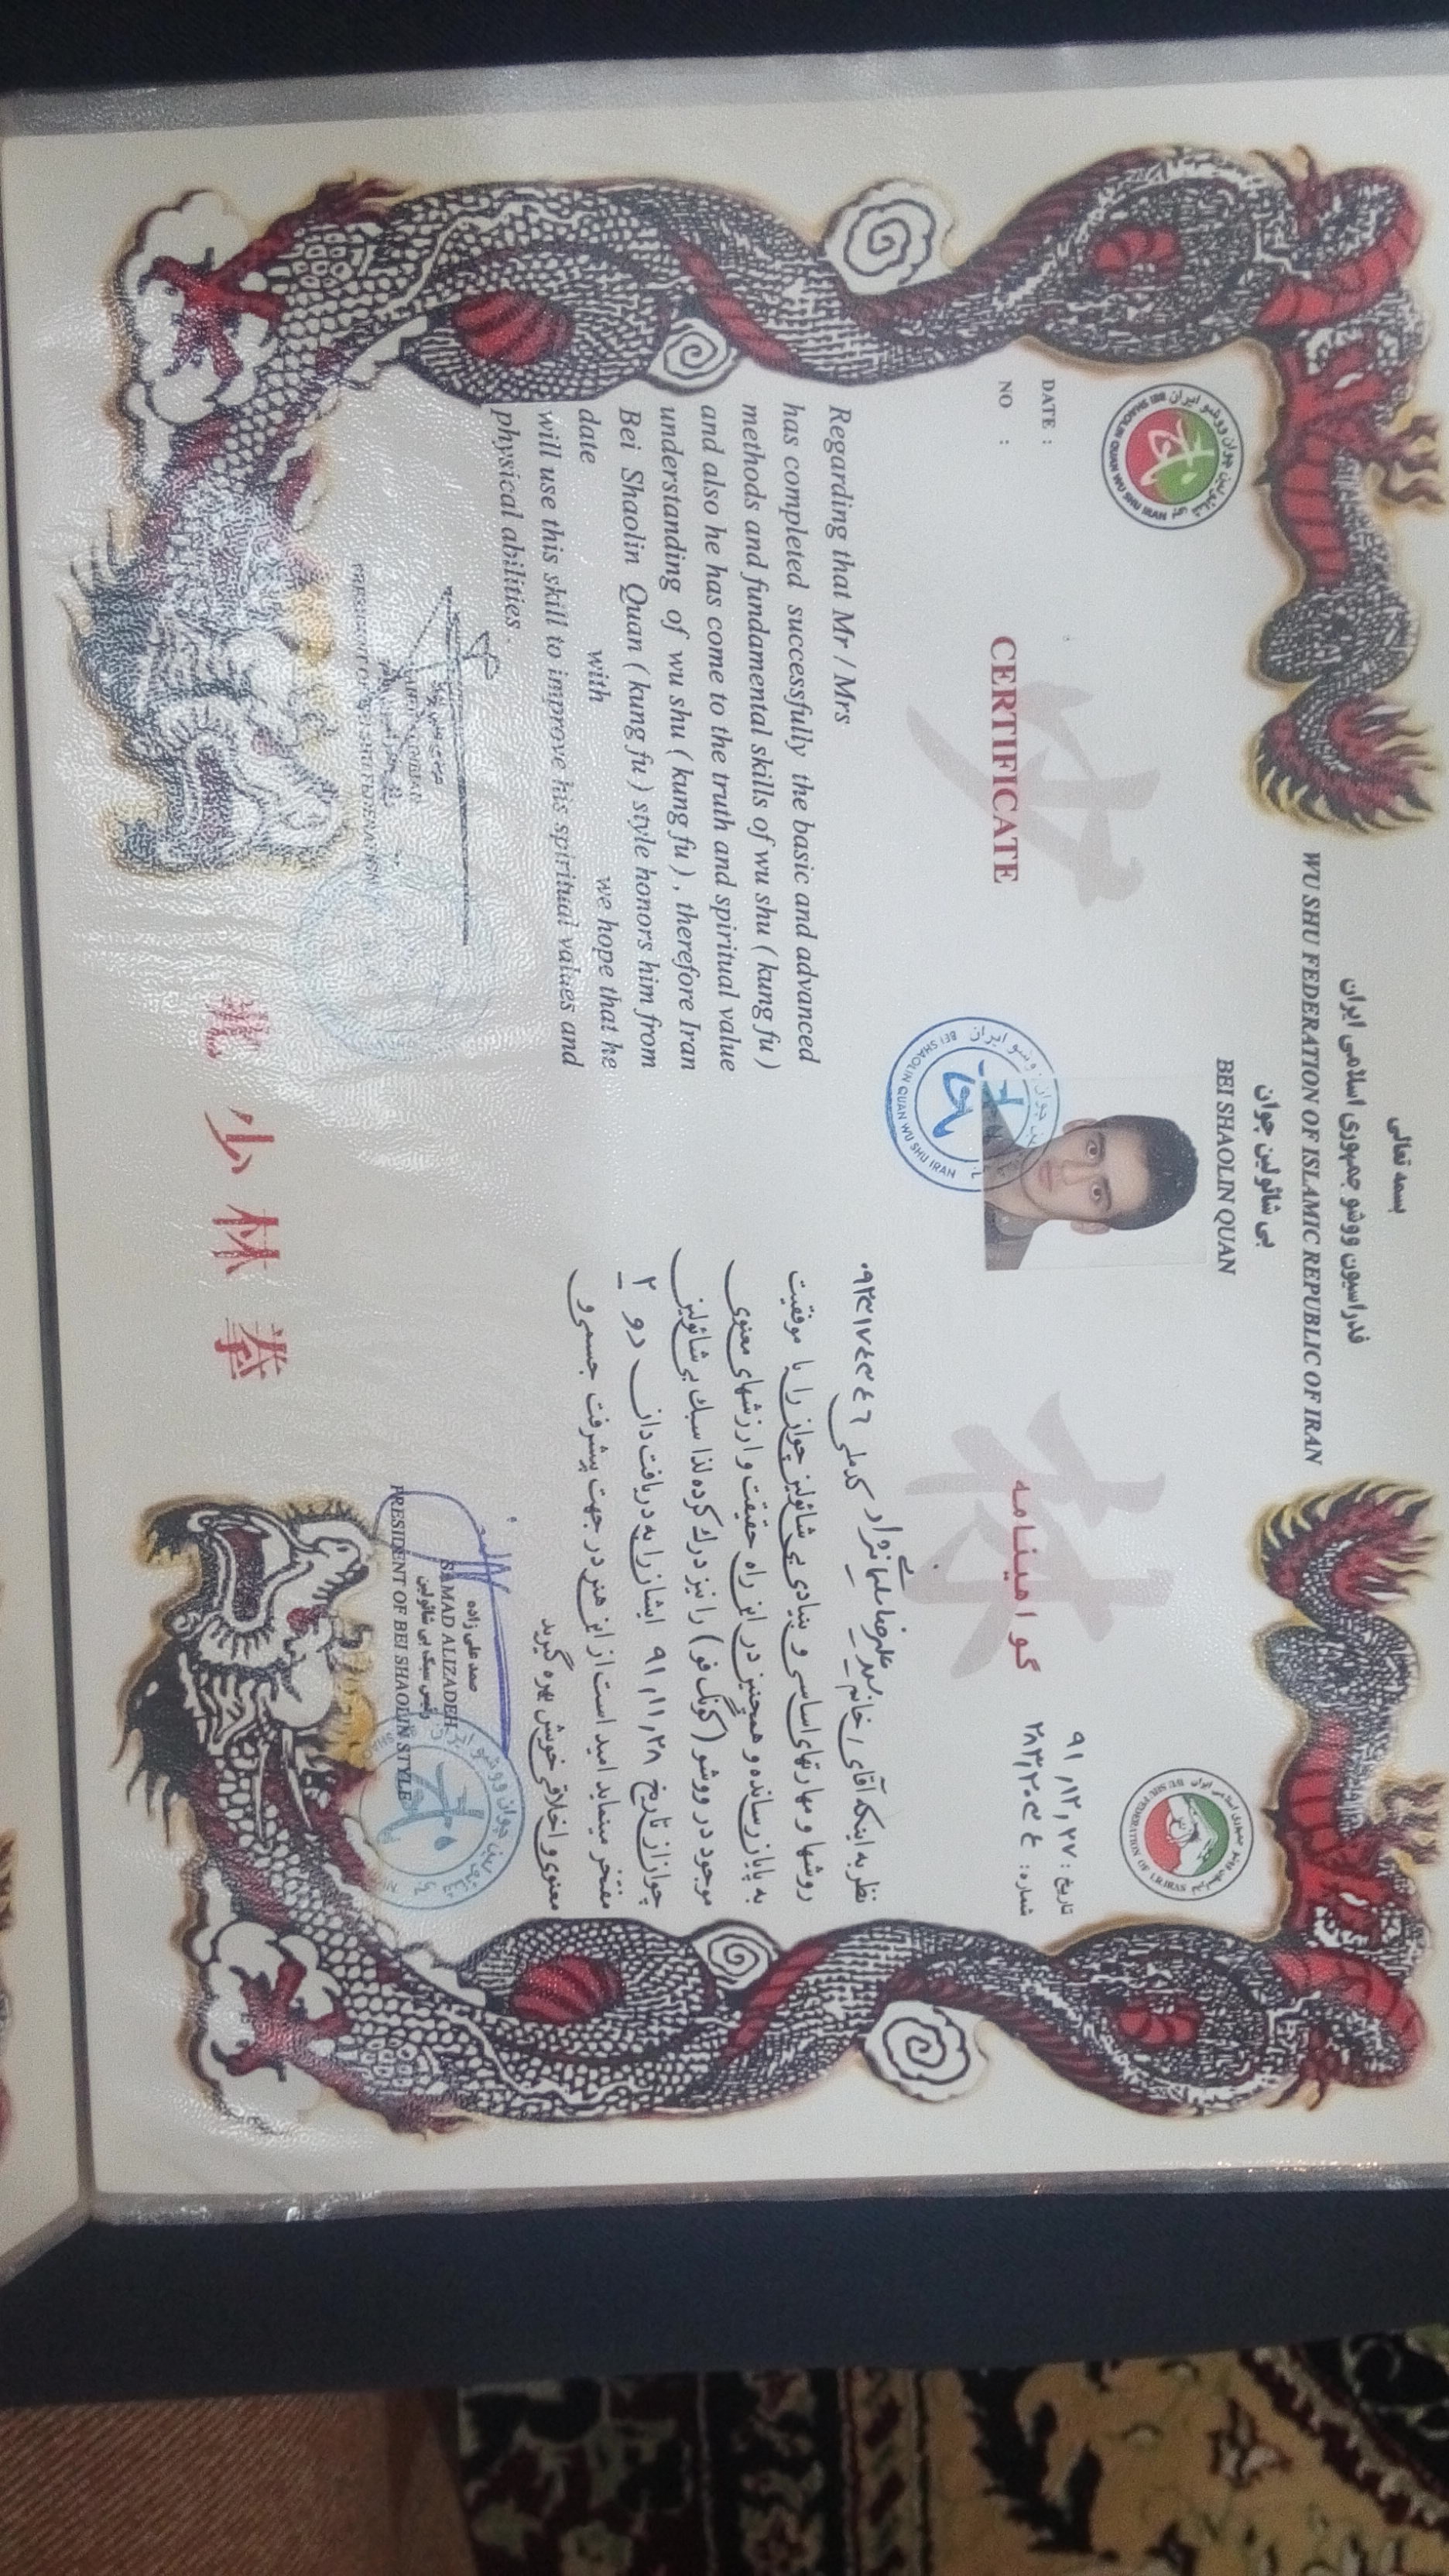 بسمه تعالی
فدراسیون ووشو جمهوری اسلامی ایران
WU SHU FEDERATION OF ISLAMIC REPUBLIC OF IRAN
بی شائولین چوان
BEI SHAOLIN QUAN
BEI SHAOLIN QUAN WU SHU IRAN
DATE :
NO :
CERTIFICATE
Regarding that Mr / Mrs
has completed successfully the basic and advanced
methods and fundamental skills of wu shu ( kung fu )
and also he has come to the truth and spiritual value
understanding of wu shu ( kung fu ) , therefore Iran
Bei Shaolin Quan ( kung fu ) style honors him from
date with we hope that he
will use this skill to improve his spiritual values and
physical abilities .
BEI SHAOLIN QUAN WU SHU IRAN
تاریخ : ۹۱,۱۲,۲۷
شماره : ۲۸۳,۲۰۳۴
گواهینامه
نظر به اینکه آقای / خانم علیرضا سلمانی نژاد کدملی
روشها و مهارتهای اساسی و بنیادی بی شائولین چوان را با موفقیت
به پایان رسانده و همچنین در این راه حقیقت و ارزشهای معنوی
موجود در ووشو (کونگ فو) را نیز درک کرده لذا سبک بی شائولین
چوان از تاریخ ۹۱,۱۱,۲۸ ایشان را به دریافت دان دو ۲
مفتخر مینماید امید است از این هنر در جهت پیشرفت جسمی و
معنوی و اخلاقی خویش بهره گیرید
صمد علی زاده
SAMAD ALIZADEH
رئیس سبک بی شائولین
PRESIDENT OF BEI SHAOLIN STYLE
少 林 拳